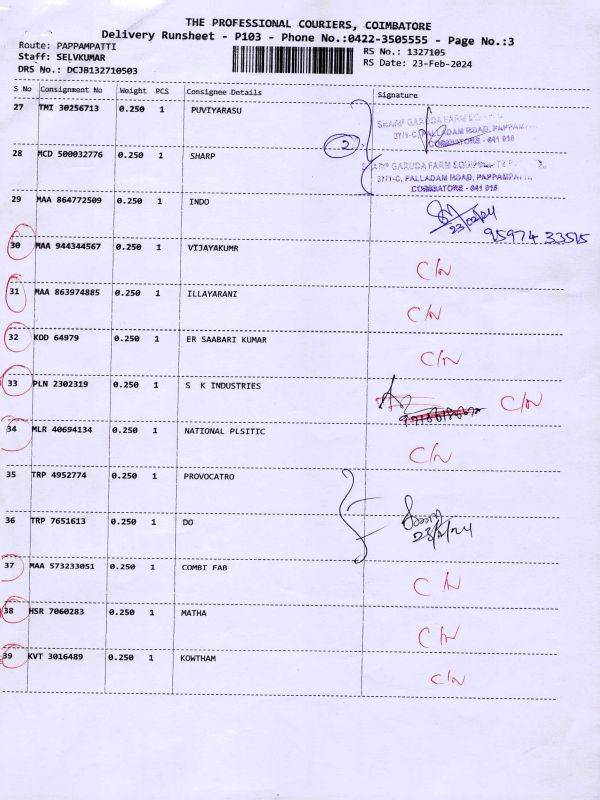 THE PROFESSIONAL COURIERS, COIMBATORE
Delivery Runsheet - P103 - Phone No.:0422-3505555 - Page No.:3
Route: PAPPAMPATTI
RS No.: 1327105
Staff: SELVKUMAR
RS Date: 23-Feb-2024
DRS No.: DCJB132710503
S No Consignment No Weight PCS Consignee Details Signature
27 TMI 30256713 0.250 1 PUVIYARASU
SHARP GARUDA FARM
37/1-C, PALLADAM ROAD, PAPPAM
COIMBATORE - 641 016
2
28 MCD 500032776 0.250 1 SHARP
SHARP GARUDA FARM
37/1-C, PALLADAM ROAD, PAPPAMPA
COIMBATORE - 641 016
29 MAA 864772509 0.250 1 INDO
23/02/24
95974 33515
30 MAA 944344567 0.250 1 VIJAYAKUMR
C/N
31 MAA 863974885 0.250 1 ILLAYARANI
C/N
32 KOD 64979 0.250 1 ER SAABARI KUMAR
C/N
33 PLN 2302319 0.250 1 S K INDUSTRIES
C/N
34 MLR 40694134 0.250 1 NATIONAL PLSITIC
C/N
35 TRP 4952774 0.250 1 PROVOCATRO
36 TRP 7651613 0.250 1 DO
23/2/24
37 MAA 573233051 0.250 1 COMBI FAB
C/N
38 HSR 7060283 0.250 1 MATHA
C/N
39 KVT 3016489 0.250 1 KOWTHAM
C/N